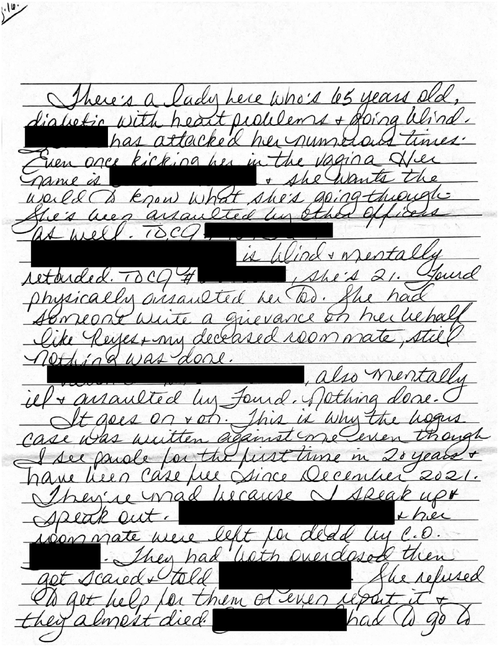 There's a lady here who's 65 years old,
diabetic with heart problems & going blind.
has attacked her numerous times.
Even once kicking her in the vagina. Her
name is & she wants the
world to know what she's going through.
She's been assaulted by other officers
as well. TDCJ
is blind & mentally
retarded. TDCJ # , she's 21. Found
physically assaulted her too. She had
someone write a grievance on her behalf
like Reyes & my deceased roommate, still
nothing was done.
, also mentally
iel & assaulted by Found. Nothing done.
It goes on & on. This is why the bogus
case was written against me even though
I see parole for the first time in 20 years &
have been case free since December 2021.
They're mad because I speak up &
speak out. & her
roommate were left for dead by C.O.
. They had both overdosed then
got scared & told . She refused
to get help for them or even report it &
they almost died. had to go to